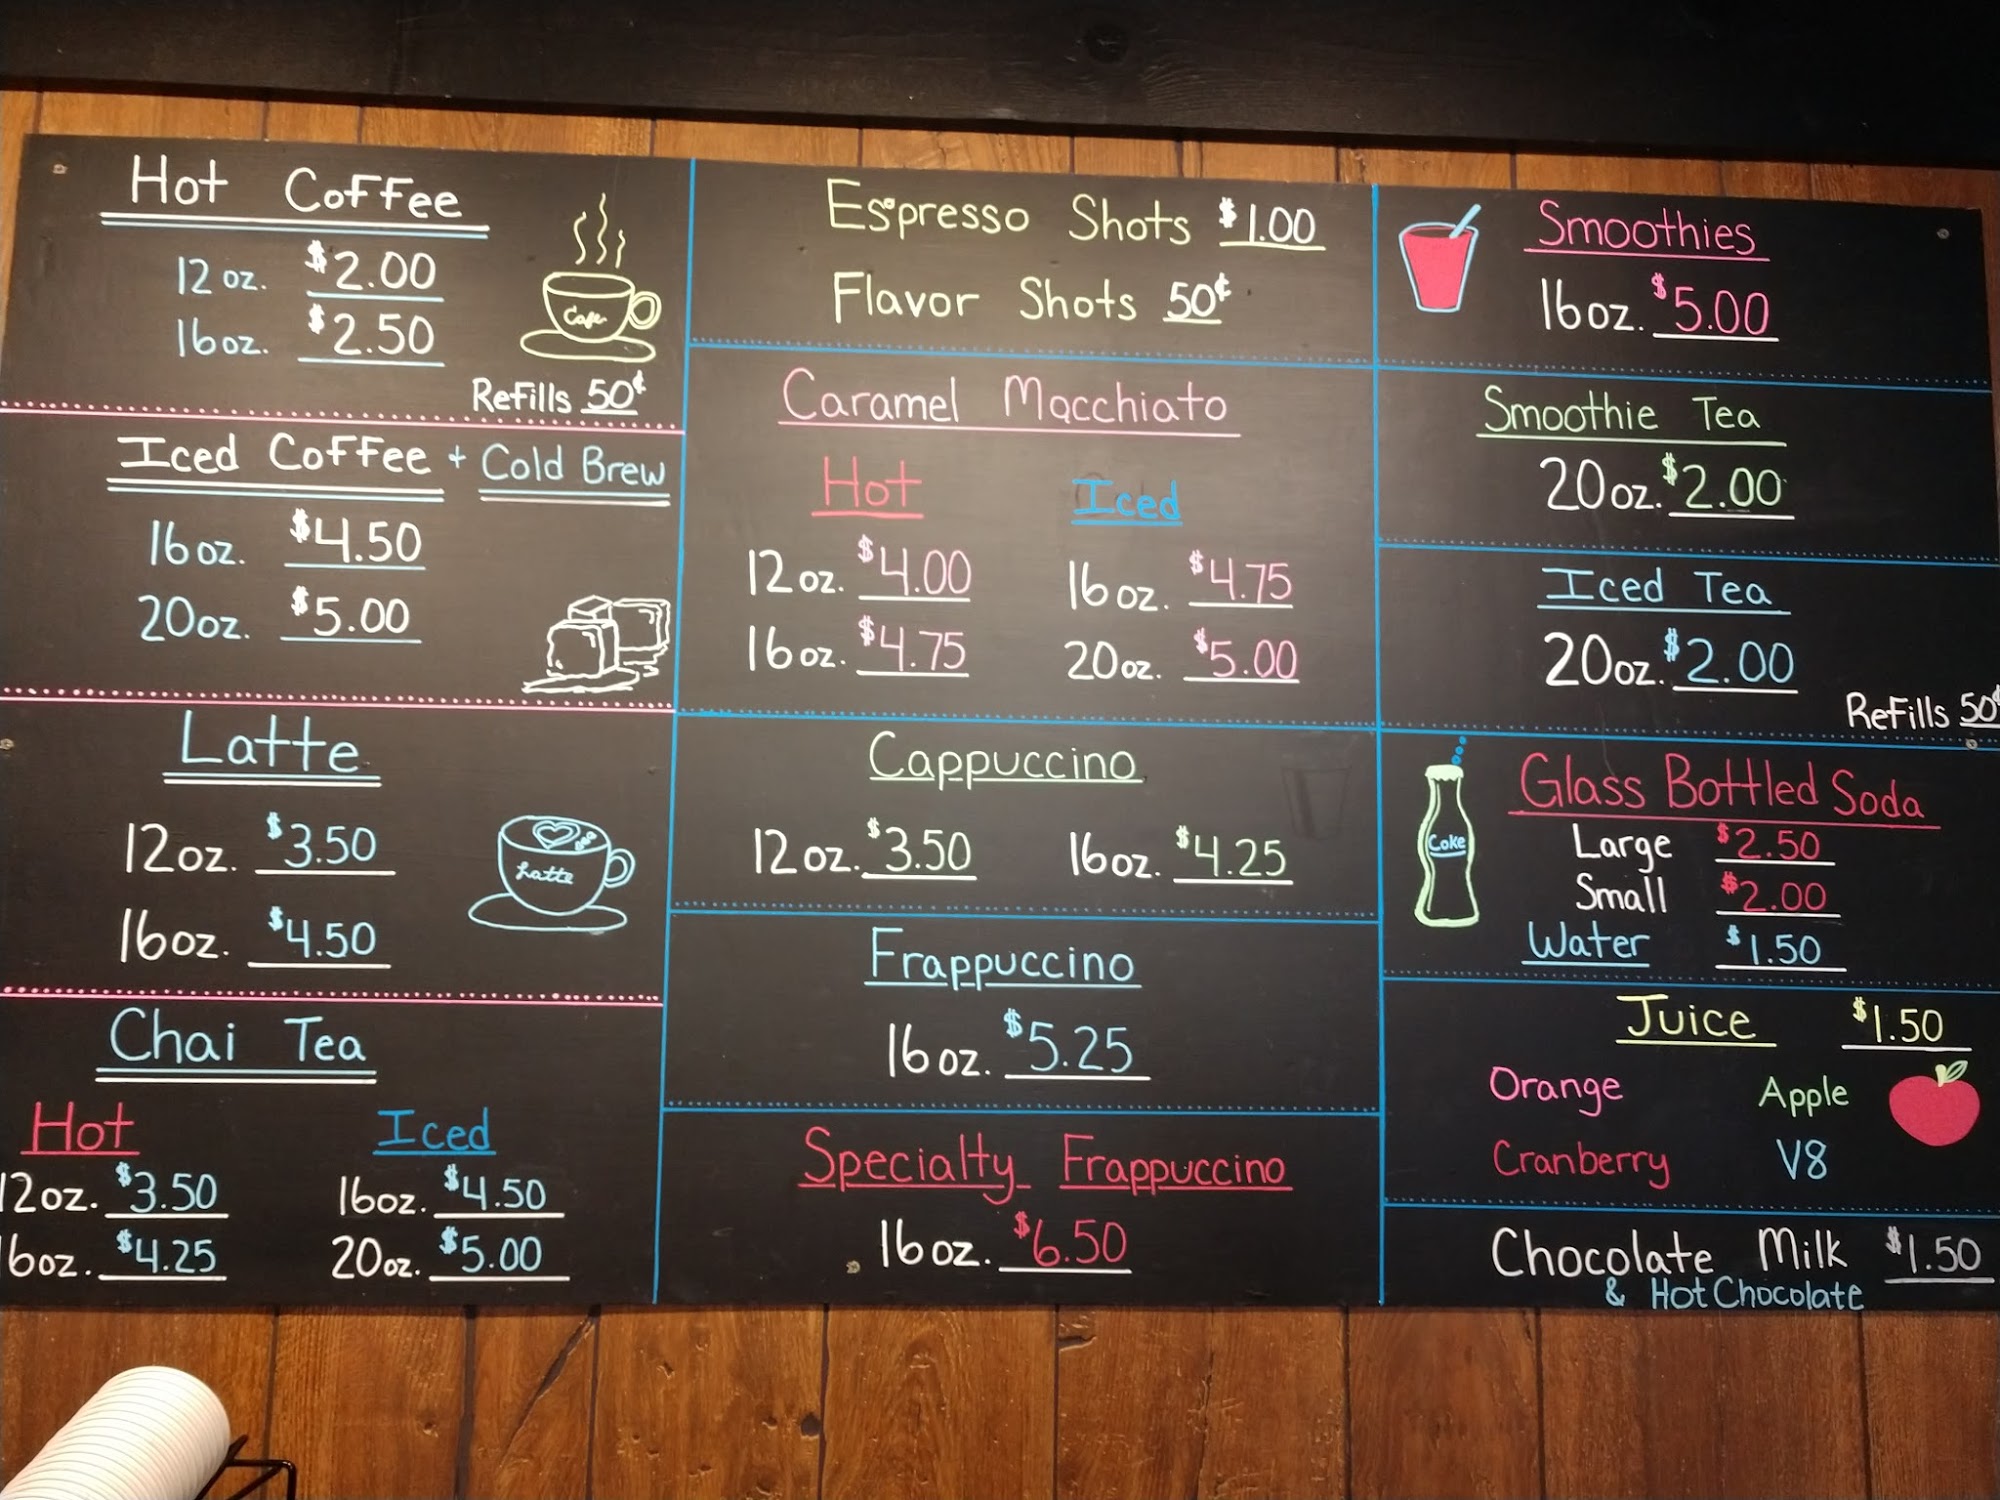 Hot Coffee
12 oz. $2.00
16 oz. $2.50
Cafe
Refills 50¢
Iced Coffee + Cold Brew
16 oz. $4.50
20 oz. $5.00
Latte
12 oz. $3.50
16 oz. $4.50
Latte
Chai Tea
Hot Iced
12 oz. $3.50 16 oz. $4.50
16 oz. $4.25 20 oz. $5.00
Espresso Shots $1.00
Flavor Shots 50¢
Caramel Macchiato
Hot Iced
12 oz. $4.00 16 oz. $4.75
16 oz. $4.75 20 oz. $5.00
Cappuccino
12 oz. $3.50 16 oz. $4.25
Frappuccino
16 oz. $5.25
Specialty Frappuccino
16 oz. $6.50
Smoothies
16 oz. $5.00
Smoothie Tea
20 oz. $2.00
Iced Tea
20 oz. $2.00
Refills 50¢
Glass Bottled Soda
Coke
Large $2.50
Small $2.00
Water $1.50
Juice $1.50
Orange Apple
Cranberry V8
Chocolate Milk $1.50
& Hot Chocolate